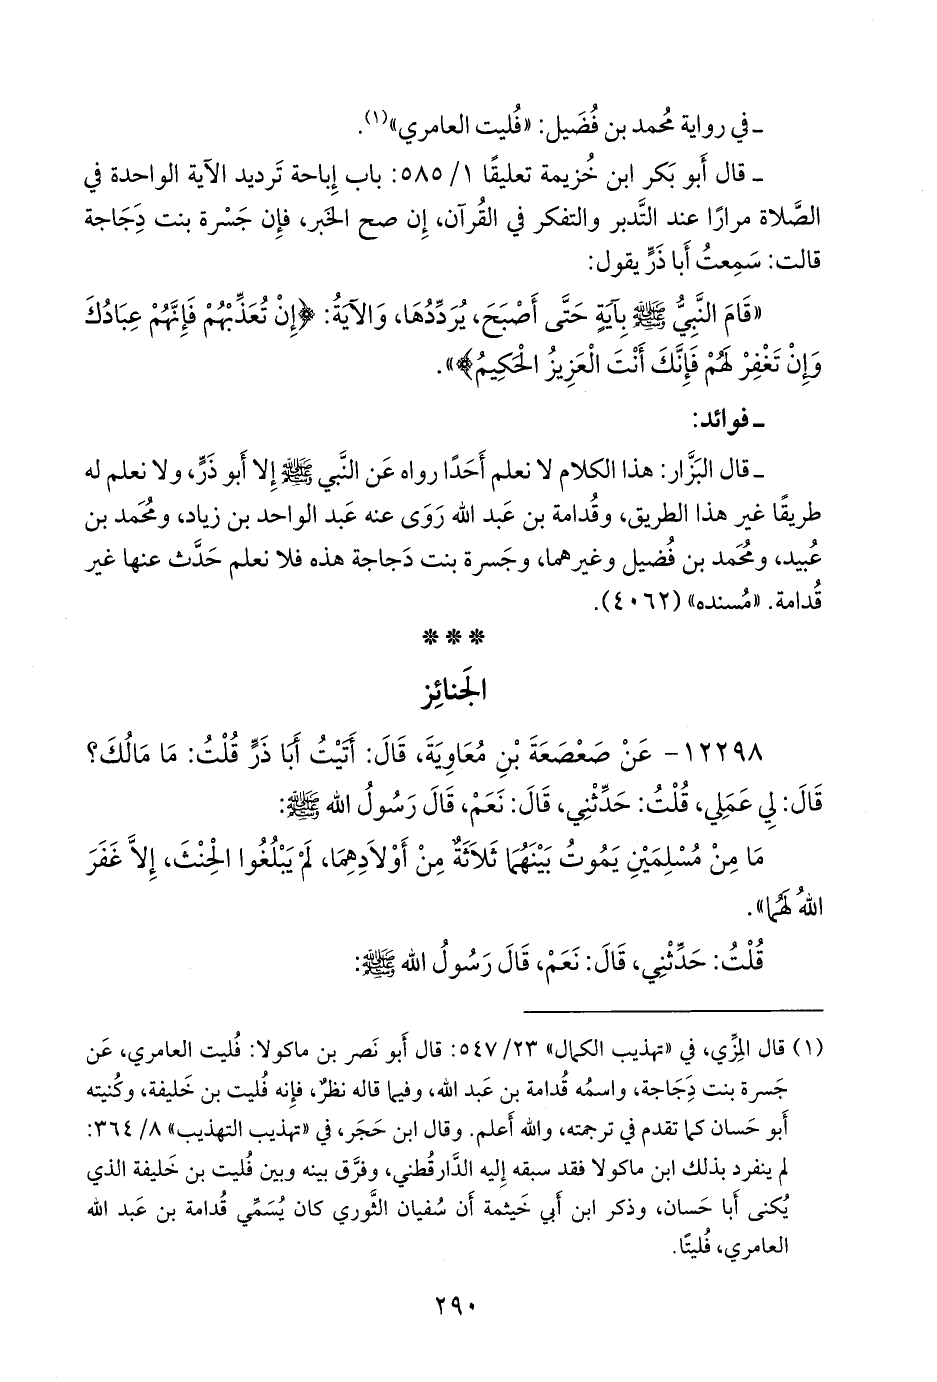 ـ في رواية محُمد بن فُضَيل: «فُليت العامري»(١).
ـ قال أَبو بَكر ابن خُزيمة تعليقًا ١/ ٥٨٥: باب إِباحة تَرديد الآية الواحدة في
الصَّلاة مرارًا عند التَّدبر والتفكر في القُرآن، إِن صح الخَبر، فإِن جَسْرة بنت دِجَاجة
قالت: سَمِعتُ أَبا ذَرٍّ يقول:
«قَامَ النَّبِيُّ ﷺ بِآيَةٍ حَتَّى أَصْبَحَ، يُرَدِّدُهَا، وَالآيَةُ: ﴿إِنْ تُعَذِّبْهُمْ فَإِنَّهُمْ عِبَادُكَ
وَإِنْ تَغْفِرْ لَهُمْ فَإِنَّكَ أَنْتَ الْعَزِيزُ الْحَكِيمُ﴾».
ـ فوائد:
ـ قال البَزَّار: هذا الكلام لا نعلم أَحَدًا رواه عَن النَّبي ﷺ إِلا أَبو ذَرٍّ، ولا نعلم له
طريقًا غير هذا الطريق، وقُدامة بن عَبد الله رَوَى عنه عَبد الواحد بن زياد، ومحُمد بن
عُبيد، ومحُمد بن فُضيل وغيرهما، وجَسرة بنت دَجاجة هذه فلا نعلم حَدَّث عنها غير
قُدامة. «مُسنده» (٤٠٦٢).
***
الجَنائِز
١٢٢٩٨- عَنْ صَعْصَعَةَ بْنِ مُعَاوِيَةَ، قَالَ: أَتَيْتُ أَبَا ذَرٍّ قُلْتُ: مَا مَالُكَ؟
قَالَ: لِي عَمَلِي، قُلْتُ: حَدِّثْنِي، قَالَ: نَعَمْ، قَالَ رَسُولُ الله ﷺ:
مَا مِنْ مُسْلِمَيْنِ يَمُوتُ بَيْنَهُمَا ثَلاَثَةٌ مِنْ أَوْلاَدِهِمَا، لَمْ يَبْلُغُوا الْحِنْثَ، إِلاَّ غَفَرَ
اللهُ لَهُمَا».
قُلْتُ: حَدِّثْنِي، قَالَ: نَعَمْ، قَالَ رَسُولُ الله ﷺ:
(١) قال المِزِّي، في «تهذيب الكمال» ٢٣/ ٥٤٧: قال أَبو نَصر بن ماكولا: فُليت العامري، عَن
جَسرة بنت دِجَاجة، واسمُه قُدامة بن عَبد الله، وفيما قاله نظرٌ، فإِنه فُليت بن خَليفة، وكُنيته
أَبو حَسان كما تقدم في ترجمته، والله أَعلم. وقال ابن حَجَر، في «تهذيب التهذيب» ٨/ ٣٦٤:
لم ينفرد بذلك ابن ماكولا فقد سبقه إِليه الدَّارقُطني، وفرَّق بينه وبين فُليت بن خَليفة الذي
يُكنى أَبا حَسان، وذكر ابن أَبي خَيثمة أَن سُفيان الثَّوري كان يُسَمِّي قُدامة بن عَبد الله
العامري، فُليتًا.
٢٩٠